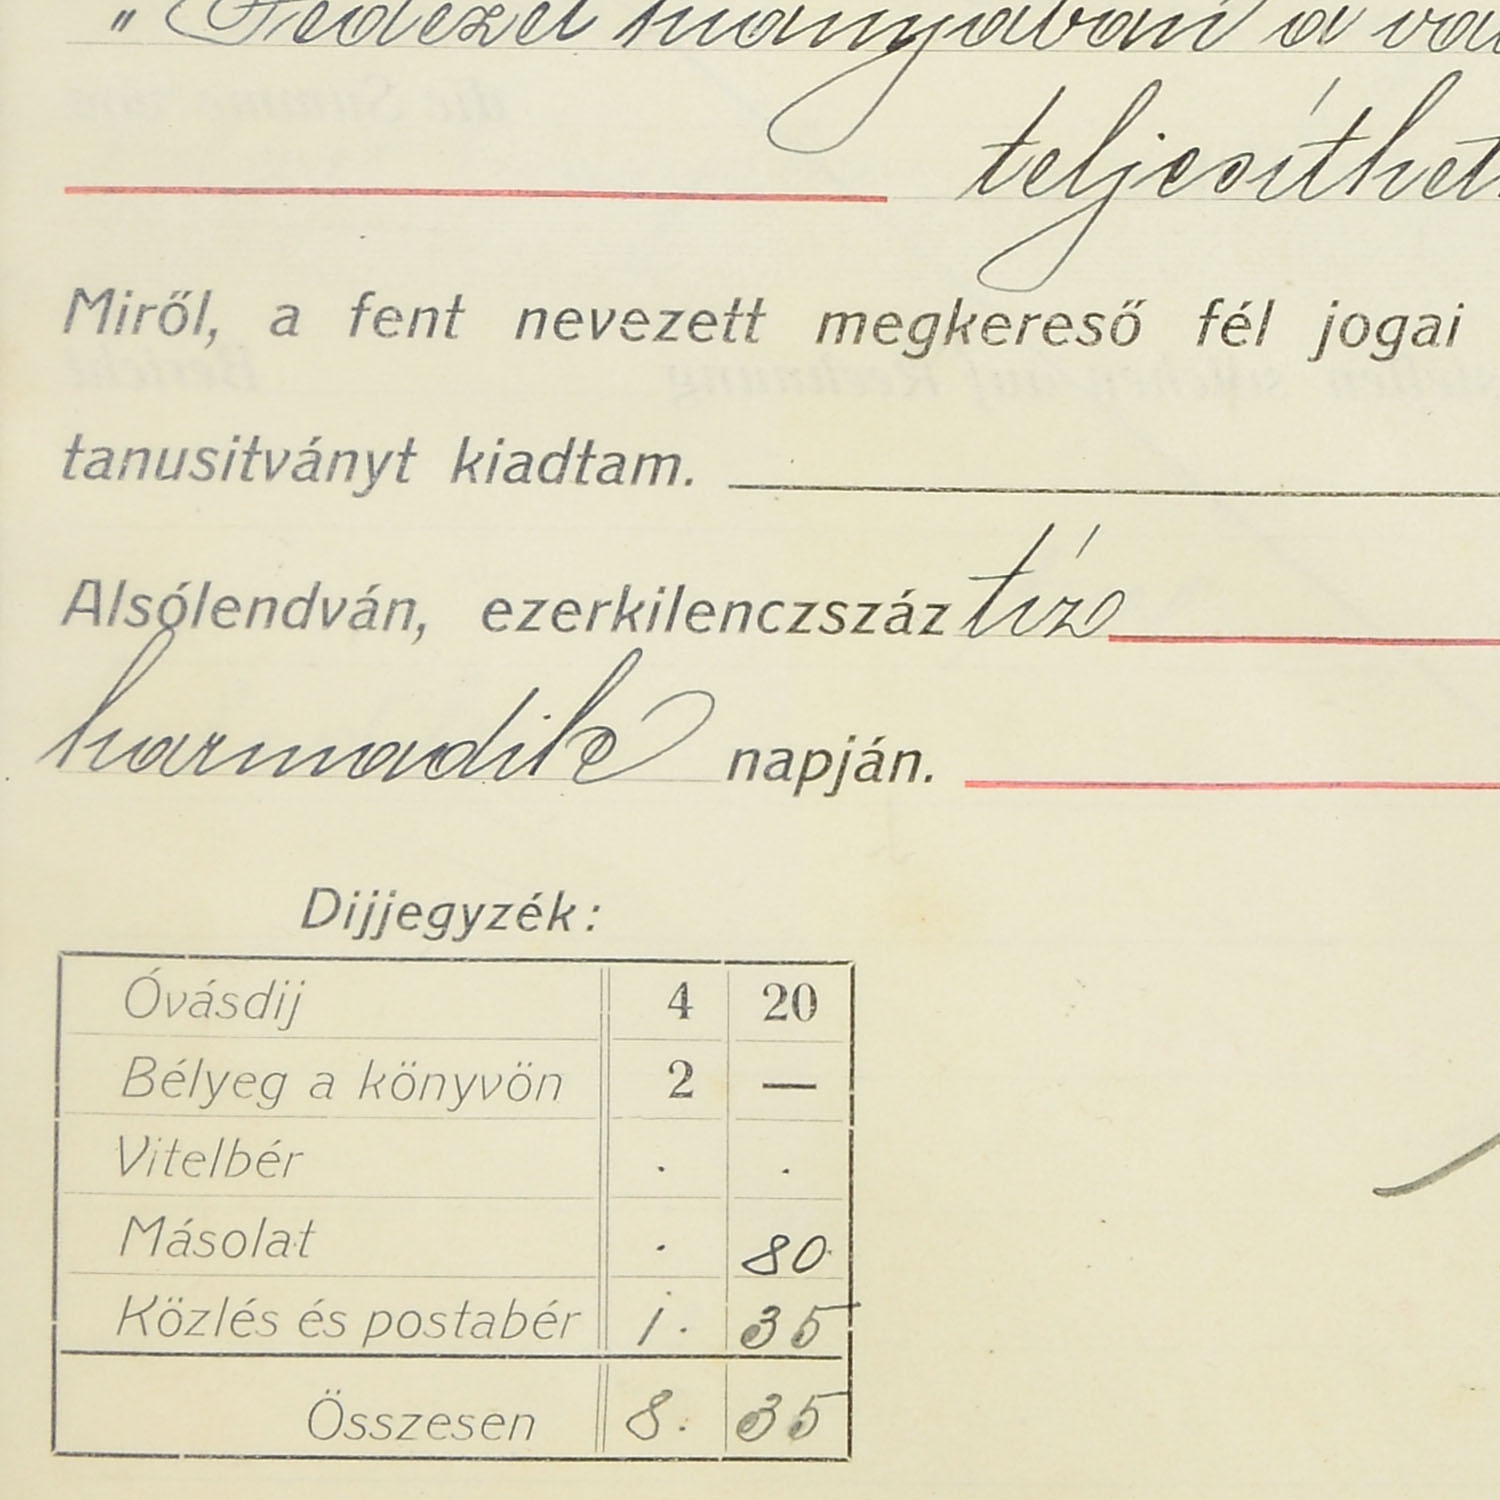 „Fedezet hiányában a vál
teljesíthet
Miről, a fent nevezett megkereső fél jogai
tanusitványt kiadtam.
Alsólendván, ezerkilenczszáz tíz
harmadik napján.
Dijjegyzék:
Óvásdij 4 20
Bélyeg a könyvön 2 —
Vitelbér . .
Másolat . 80
Közlés és postabér 1. 35
Összesen 8. 35